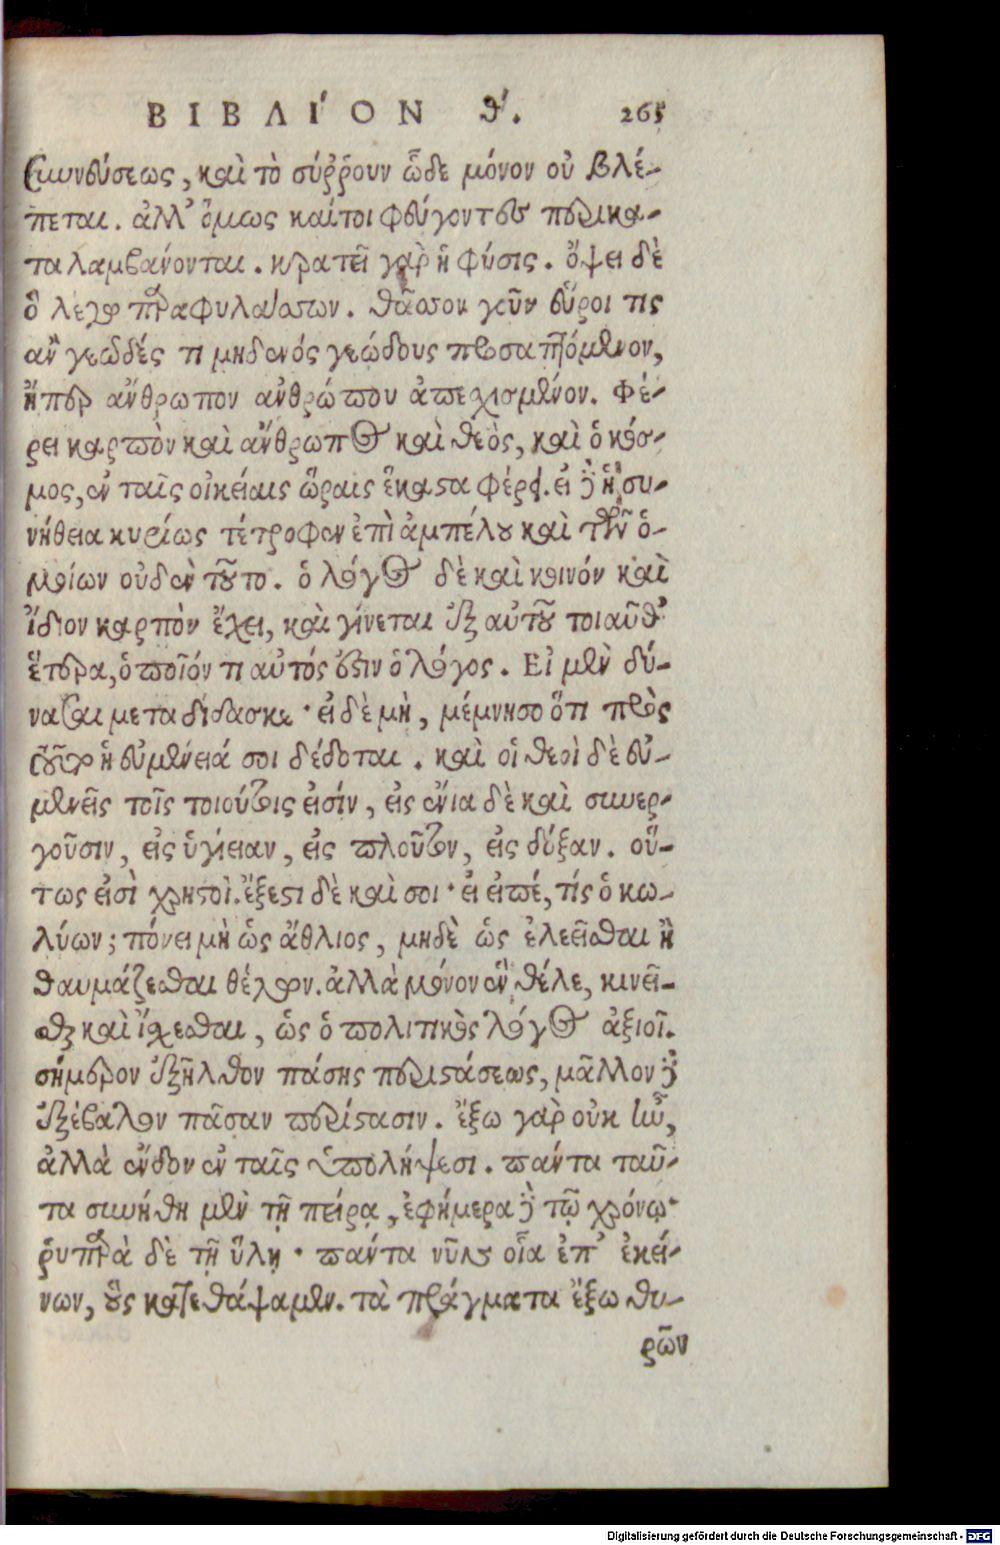 ΒΙΒΛΙ´ΟΝ θ΄. 265
συννεύσεως, καὶ τὸ σύῤῥουν ὧδε μόνον οὐ βλέ-
πεται. ἀλλ' ὅμως καίτοι φεύγοντες περικα-
ταλαμβάνονται. κρατεῖ γὰρ ἡ φύσις. ὄψει δὲ
ὃ λέγω παραφυλάσσων. θᾶσσον γοῦν εὕροι τις
ἂν γεῶδές τι μηδενός γεώδους προσαπτόμενον,
ἤπερ ἄνθρωπον ἀνθρώπου ἀπεσχισμένον. Φέ-
ρει καρπὸν καὶ ἄνθρωπος καὶ θεὸς, καὶ ὁ κόσ-
μος, ἐν ταῖς οἰκείαις ὥραις ἕκαστα φέρει. εἰ δὲ ἡ συ-
νήθεια κυρίως τέτροφεν ἐπὶ ἀμπέλου καὶ τῶν ὁ-
μοίων οὐδὲν τοῦτο. ὁ λόγος δὲ καὶ κοινόν καὶ
ἴδιον καρπὸν ἔχει, καὶ γίνεται ἐξ αὐτοῦ τοιαῦθ'
ἕτερα, ὁποῖόν τι αὐτός ἐστιν ὁ λόγος. Εἰ μὲν δύ-
νασαι μεταδίδασκε· εἰ δὲ μὴ, μέμνησο ὅτι πρὸς
τοῦτο ἡ εὐμένειά σοι δέδοται. καὶ οἱ θεοὶ δὲ εὐ-
μενεῖς τοῖς τοιούτοις εἰσίν, εἰς ἔνια δὲ καὶ συνερ-
γοῦσιν, εἰς ὑγίειαν, εἰς πλοῦτον, εἰς δόξαν. οὕ-
τως εἰσὶ χρηστοὶ. ἔξεστι δὲ καὶ σοι· εἰ εἰπέ, τίς ὁ κω-
λύων; πόνει μὴ ὡς ἄθλιος, μηδὲ ὡς ἐλεεῖσθαι ἢ
θαυμάζεσθαι θέλων. ἀλλὰ μόνον ἓν θέλε, κινεῖ-
σθαι καὶ ἴσχεσθαι, ὡς ὁ πολιτικὸς λόγος ἀξιοῖ.
σήμερον ἐξῆλθον πάσης περιστάσεως, μᾶλλον δὲ
ἐξέβαλον πᾶσαν περίστασιν. ἔξω γὰρ οὐκ ἦν,
ἀλλὰ ἔνδον ἐν ταῖς ὑπολήψεσι. πάντα ταῦ-
τα συνήθη μὲν τῇ πείρᾳ, ἐφήμερα δὲ τῷ χρόνῳ·
ῥυπαρὰ δὲ τῇ ὕλῃ· πάντα νῦν οἷα ἐπ' ἐκεί-
νων, οὓς κατεθάψαμεν. τὰ πράγματα ἔξω θυ-
ρῶν
Digitalisierung gefördert durch die Deutsche Forschungsgemeinschaft - DFG